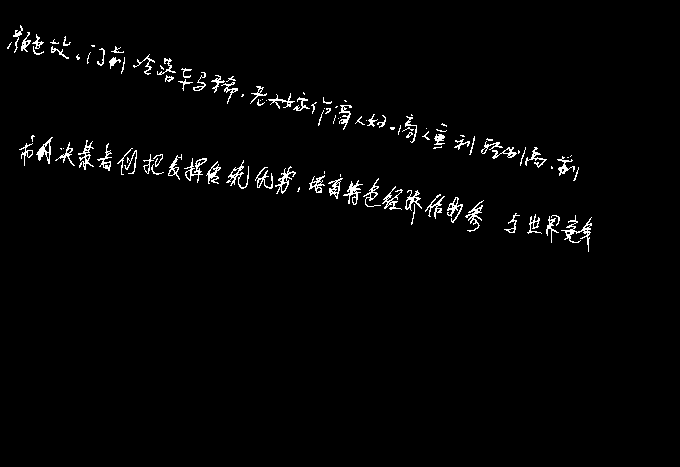 颜色故。门前冷落车马稀,老大嫁作商人妇。商人重利轻别离,前
市的决策者们把发挥传统优势,培育特色经济作为参与世界竞争